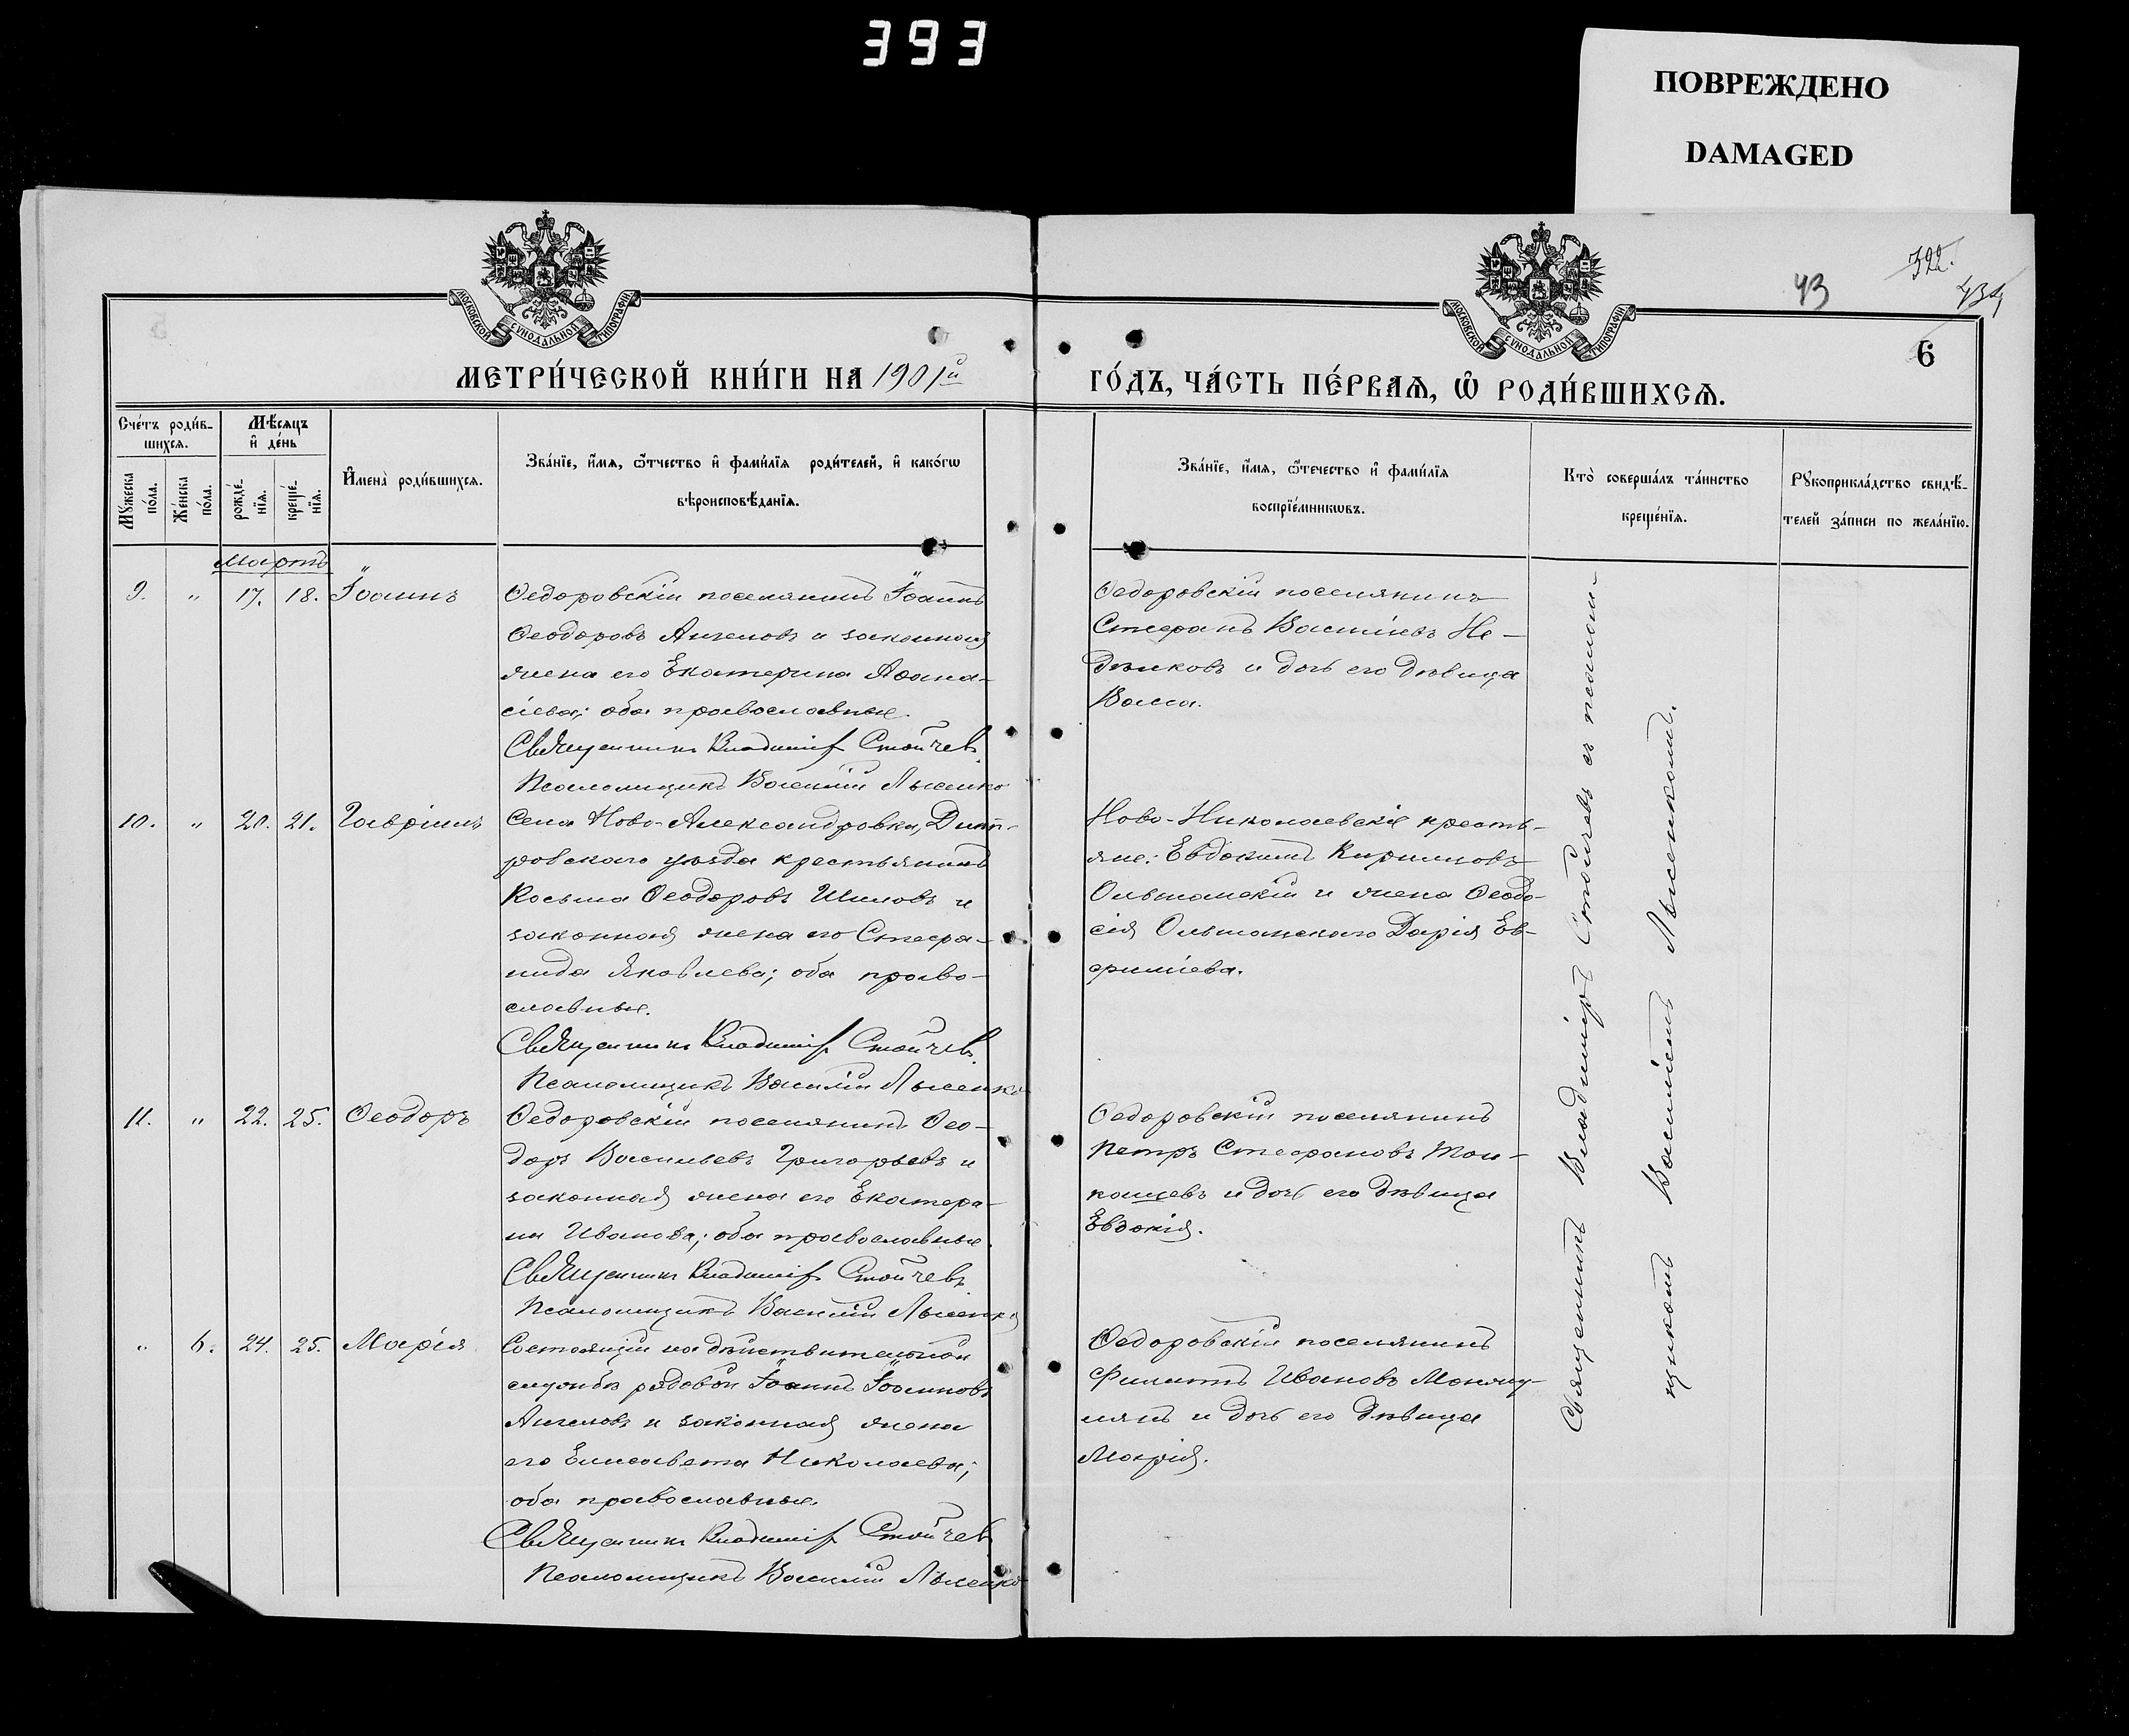 393
ПОВРЕЖДЕНО
DAMAGED
МОСКОВСКОЙ СѴНОДАЛЬНОЙ ТИПОГРАФІИ
МОСКОВСКОЙ СѴНОДАЛЬНОЙ ТИПОГРАФІИ
43
322.
434
6
МЕТРИ́ЧЕСКОЙ КНИ́ГИ НА 1901й
ГО́ДЪ, ЧА́СТЬ ПЕ́РВАѦ, Ѽ РОДИ́ВШИХСѦ.
Сче́тъ роди́в-
шихсѧ.
Мѣ́сѧцъ
и҆ де́нь
Мꙋ́жеска
по́ла.
Же́нска
по́ла.
рожде́-
нїѧ.
креще́-
нїѧ.
И҆мена̀ роди́вшихсѧ.
Зва́нїе, и҆́мѧ, ѻ҆́тчество и҆ фами́лїѧ роди́телей, и҆ како́гѡ
вѣроисповѣ́данїѧ.
Зва́нїе, и҆́мѧ, ѻ҆те́чество и҆ фами́лїѧ
воспрїе́мникѡвъ.
Кто̀ соверша́лъ та́инство
креще́нїѧ.
Рꙋкоприкла́дство свидѣ́-
телей за́писи по жела́нїю.
Мартъ
9. " 17. 18. Іоаннъ
Ѳедоровскій поселянинъ Іоаннъ
Ѳеодоровъ Ангеловъ и законная
жена его Екатерина Аѳана-
сіева; оба православные.
Священникъ Владиміръ Стойчевъ
Псаломщикъ Василій Лысенко
Ѳедоровскій поселянинъ
Стефанъ Василіевъ Не-
дѣлковъ и дочь его дѣвица
Васса.
10. " 20. 21. Гавріилъ
Села Ново-Александровка, Днѣп-
ровскаго уѣзда крестьянинъ
Косьма Ѳеодоровъ Шиловъ и
законная жена его Стефа-
нида Яковлева; оба право-
славные.
Священникъ Владиміръ Стойчевъ.
Псаломщикъ Василій Лысенко
Ново-Николаевскіе кресть-
яне: Евдокимъ Кирилловъ
Ольшанскій и жена Ѳеодо-
сія Ольшанскаго Дарія Ев-
фиміева.
11. " 22. 25. Ѳеодоръ
Ѳедоровскій поселянинъ Ѳео-
доръ Васильевъ Григорьевъ и
законная жена его Екатери-
на Иванова; оба православные.
Священникъ Владиміръ Стойчевъ
Псаломщикъ Василій Лысенко
Ѳедоровскій поселянинъ
Петръ Стефановъ Тон-
кошевъ и дочь его дѣвица
Евдокія.
" 6. 24. 25. Марія
Состоящій на дѣйствительной
службѣ рядовой Іоаннъ Іоанновъ
Ангеловъ и законная жена
его Елисавета Николаева;
оба православные.
Священникъ Владиміръ Стойчевъ
Псаломщикъ Василій Лысенко
Ѳедоровскій поселянинъ
Филиппъ Ивановъ
и дочь его дѣвица
Марія.
Священникъ Владиміръ Стойчевъ съ псаломи-
щикомъ Василіемъ Лысенкомъ.